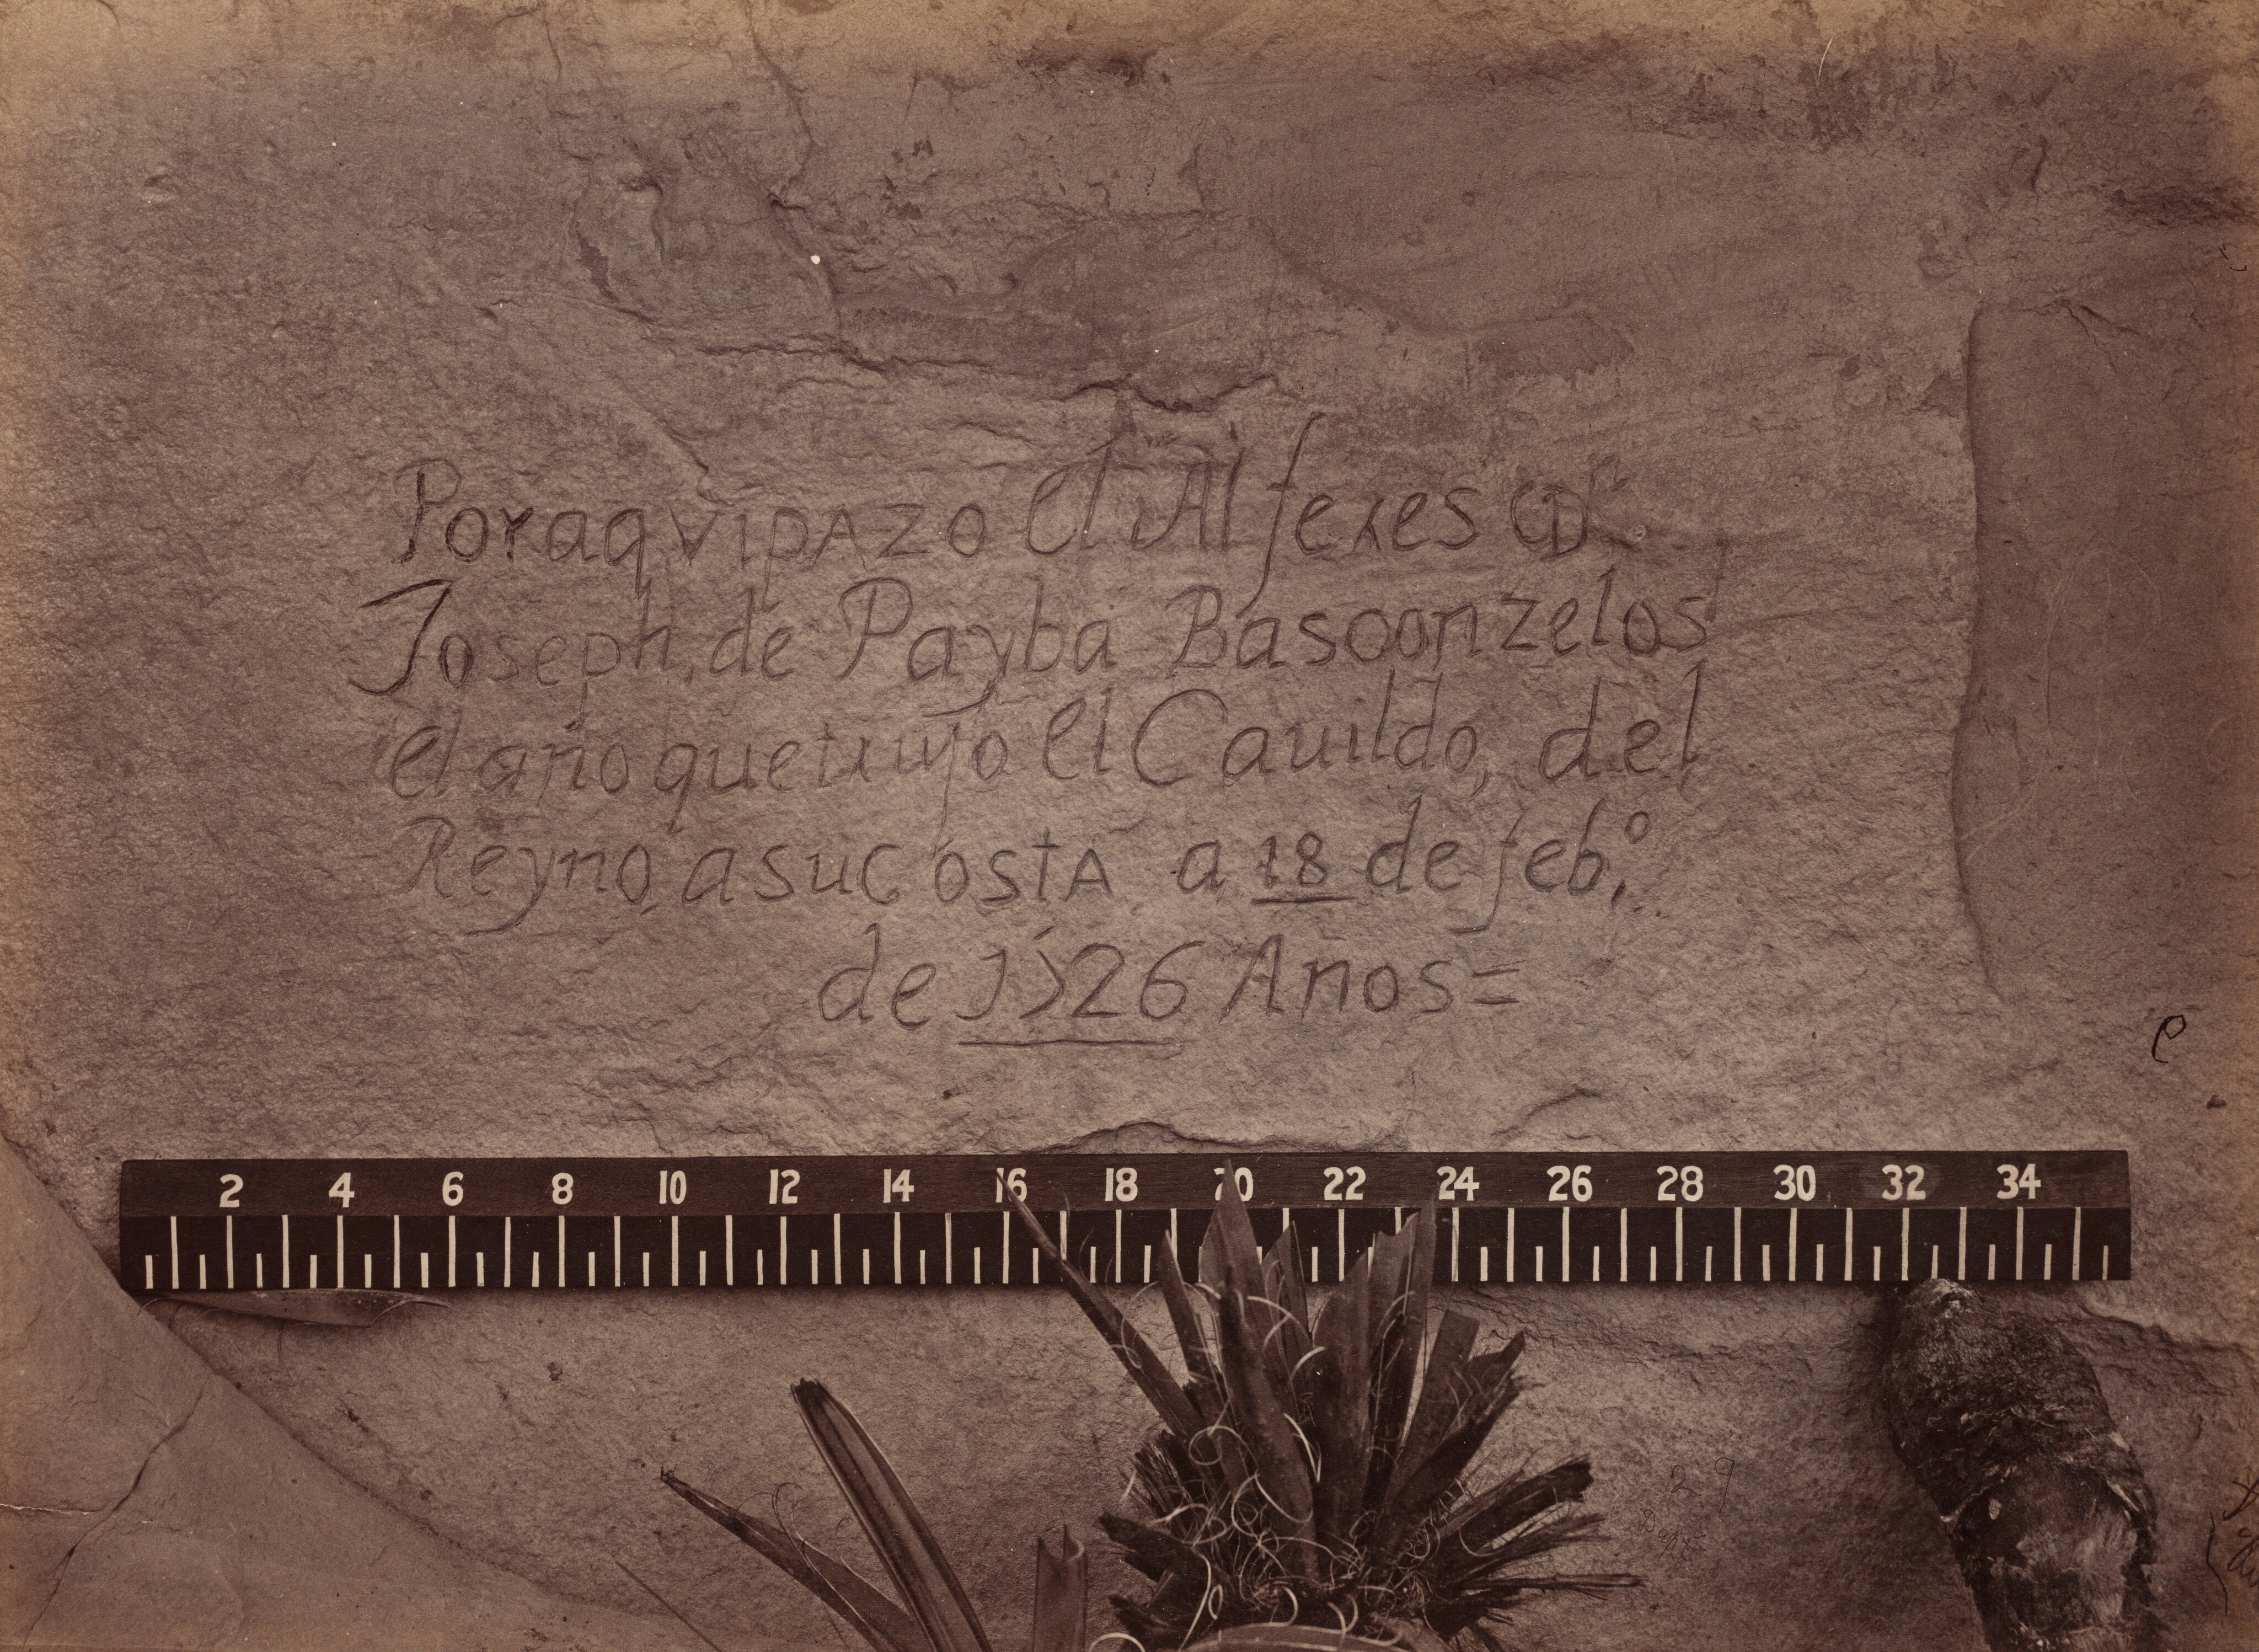 Por aqvi pazo el Alferes Dn
Joseph, de Payba Basconzelos
el año que truyo el Cauildo, del
Reyno, a su costA a 18 de feb,o
de 1526 Años=
2 4 6 8 10 12 14 16 18 20 22 24 26 28 30 32 34
29